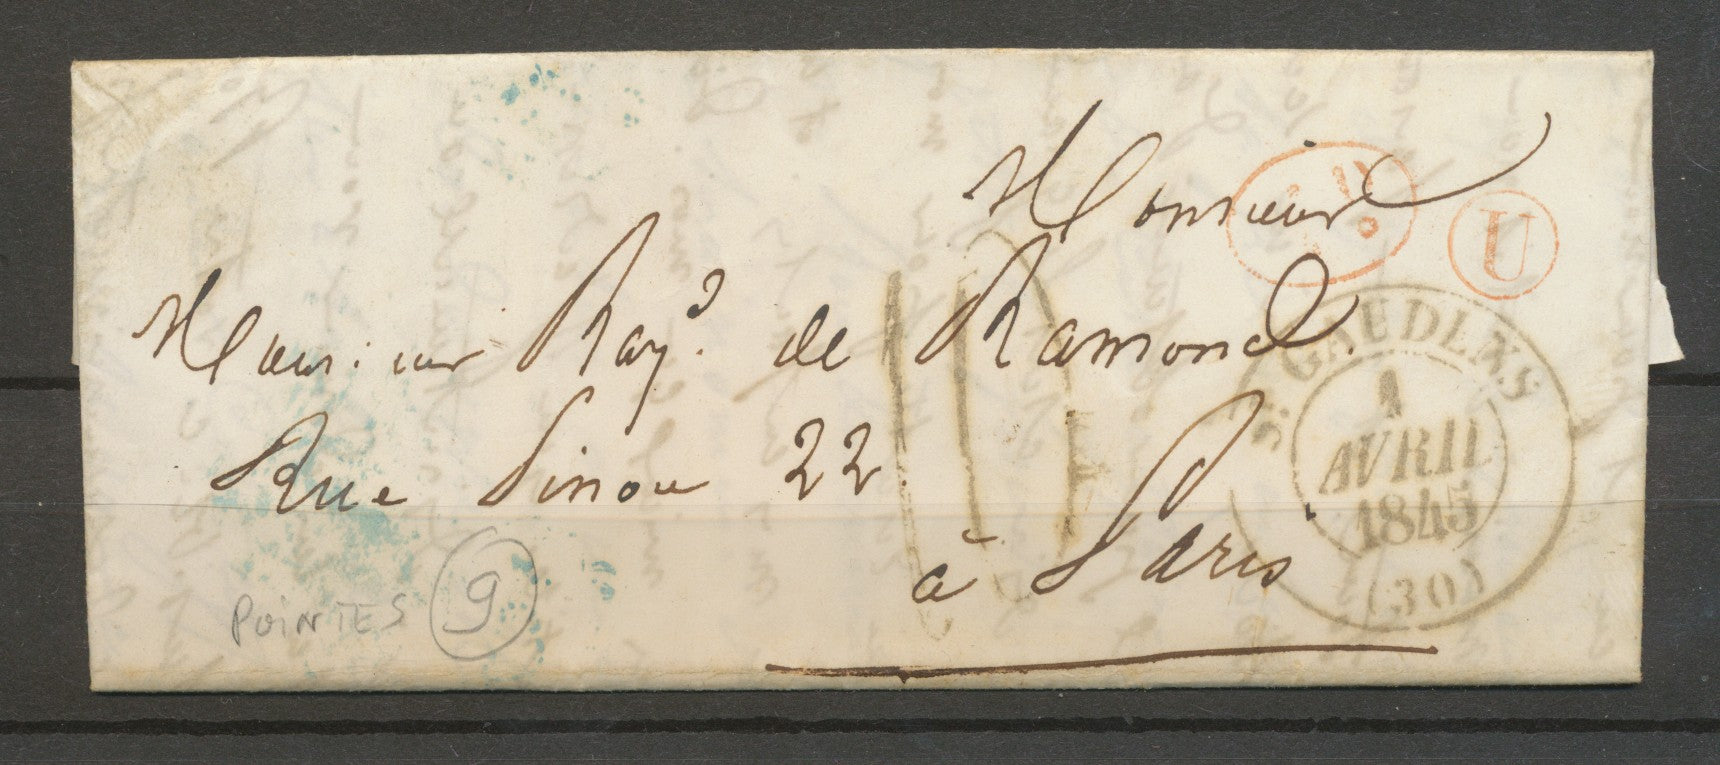 Monsieur
Monsieur Rayd. de Ramond.
Rue Sinou 22.
à Paris
U
ST GAUDENS
1
AVRIL
1845
(30)
POINTES 9